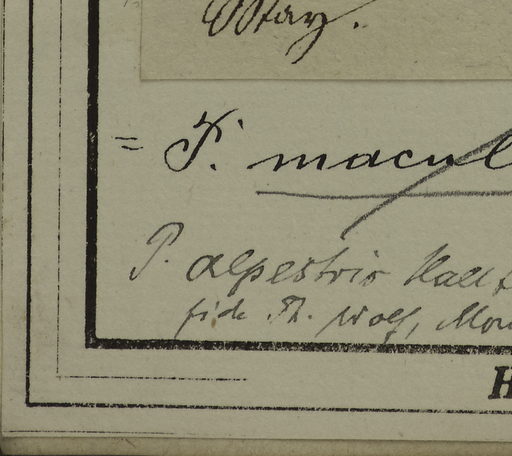 May.
= P. macul
P. alpestris Hall f
fide Th. Wolf, Mon
H